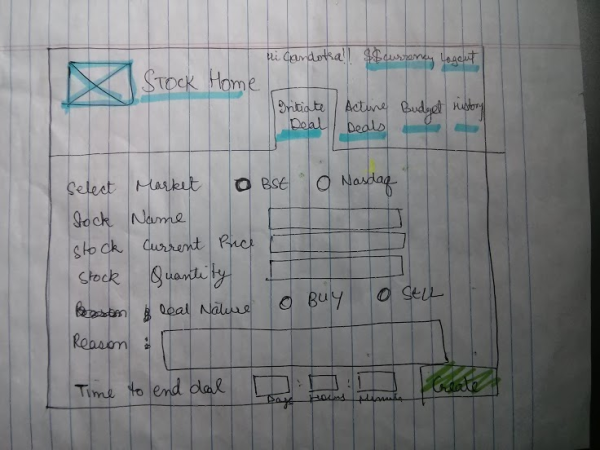 Hi Gandotra!! $$currency Logout
STOCK HOME
Initiate Deal
Active Deals
Budget
History
Select Market BSE Nasdaq
Stock Name
Stock Current Price
Stock Quantity
Deal Nature BUY SELL
Reason :
Time to end deal : : Create
Days Hours Minute